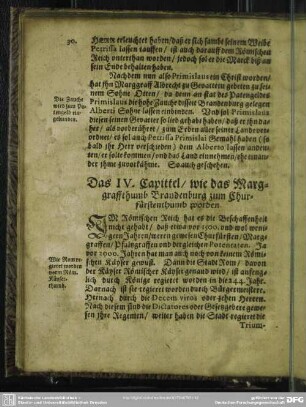 30.
Hœmo erleuchtet haben/daß er sich sambt seinem Weibe
Petrissa lassen tauffen/ ist auch darauff dem Römischen
Reich unterthan worden/ jedoch sol er die Marck biß an
sein Ende behalten haben.
Nachdem nun also Primislaus ein Christ worden/
hat ihn Marggraff Albrecht zu Gevattern gebeten zu sei-
nem Sohne Otten/ da dann an stat des Patengeldes
Primislaus die hohe Zauche disseit Brandenburg gelegen
Alberti Sohne lassen einbinden.
Die Zauche
wird zum Pa-
tengelt ein-
gebunden.
ordnet/ es sol auch Petrissa Primislai Gemahl haben (so
bald ihr Herr verschieden) dem Alberto lassen andeu-
ten/ er solte kommen/ und das Land einnehmen/ ehe man
der ihme zuvor käme. So auch geschehen.
Das IV. Capittel/ wie das Marg-
graffthumb Brandenburg zum Chur-
fürstenthumb worden
IM Römischen Reich hat es die Beschaffenheit
nicht gehabt/ daß etwa vor 1500. und wol weni-
gern Jahren/
graffen/ Pfaltzgraffen und der gleichen Potentaten. Ja
vor 3000. Jahren hat man auch noch von keinem Römi-
schen Käyser gewust. Dann die Stadt Rom/ davon
der Käyser Römischer Käyser genand wird/ ist anfeng-
lich durch Könige regieret worden in die 244. Jahr.
Darnach ist sie regieret worden durch Bürgermeistere.
Hernach durch die Decem viros oder zehen Herren.
Nach diesem sind die Dictatores oder Gesengebere gewe-
sen ihre Regenten/ weiter haben die Stadt regieret die
Trium-
Wie Rom re-
gieret worden
vorm Röm.
Käyser-
thumb.